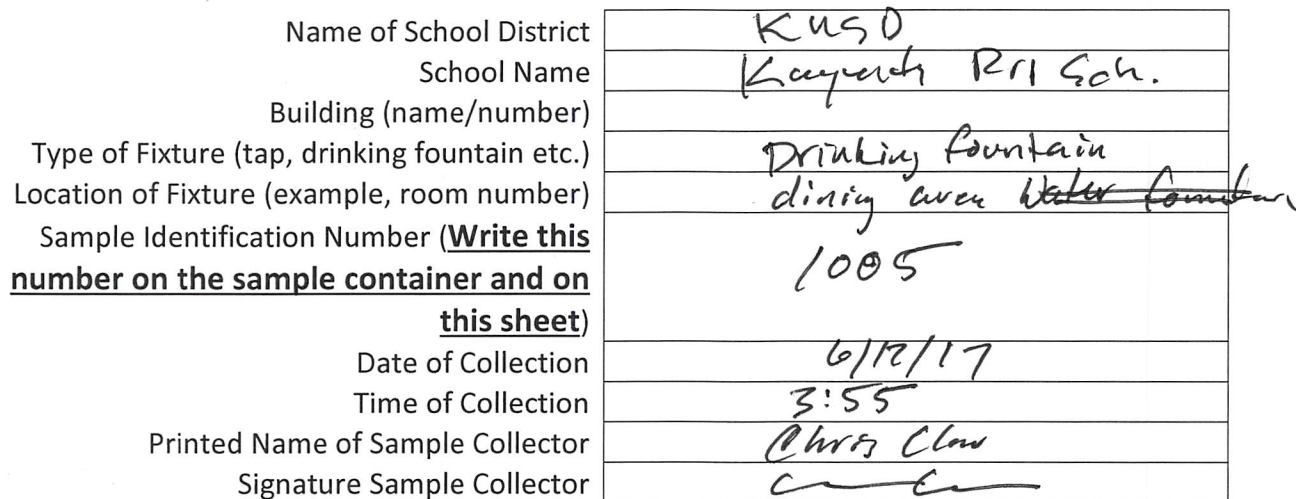 Name of School District KUSD
School Name Kayenta Pri Sch.
Building (name/number)
Type of Fixture (tap, drinking fountain etc.) Drinking fountain
Location of Fixture (example, room number) dining area Water fountain
Sample Identification Number (Write this
number on the sample container and on
this sheet) 1005
Date of Collection 6/12/17
Time of Collection 3:55
Printed Name of Sample Collector Chris
Signature Sample Collector